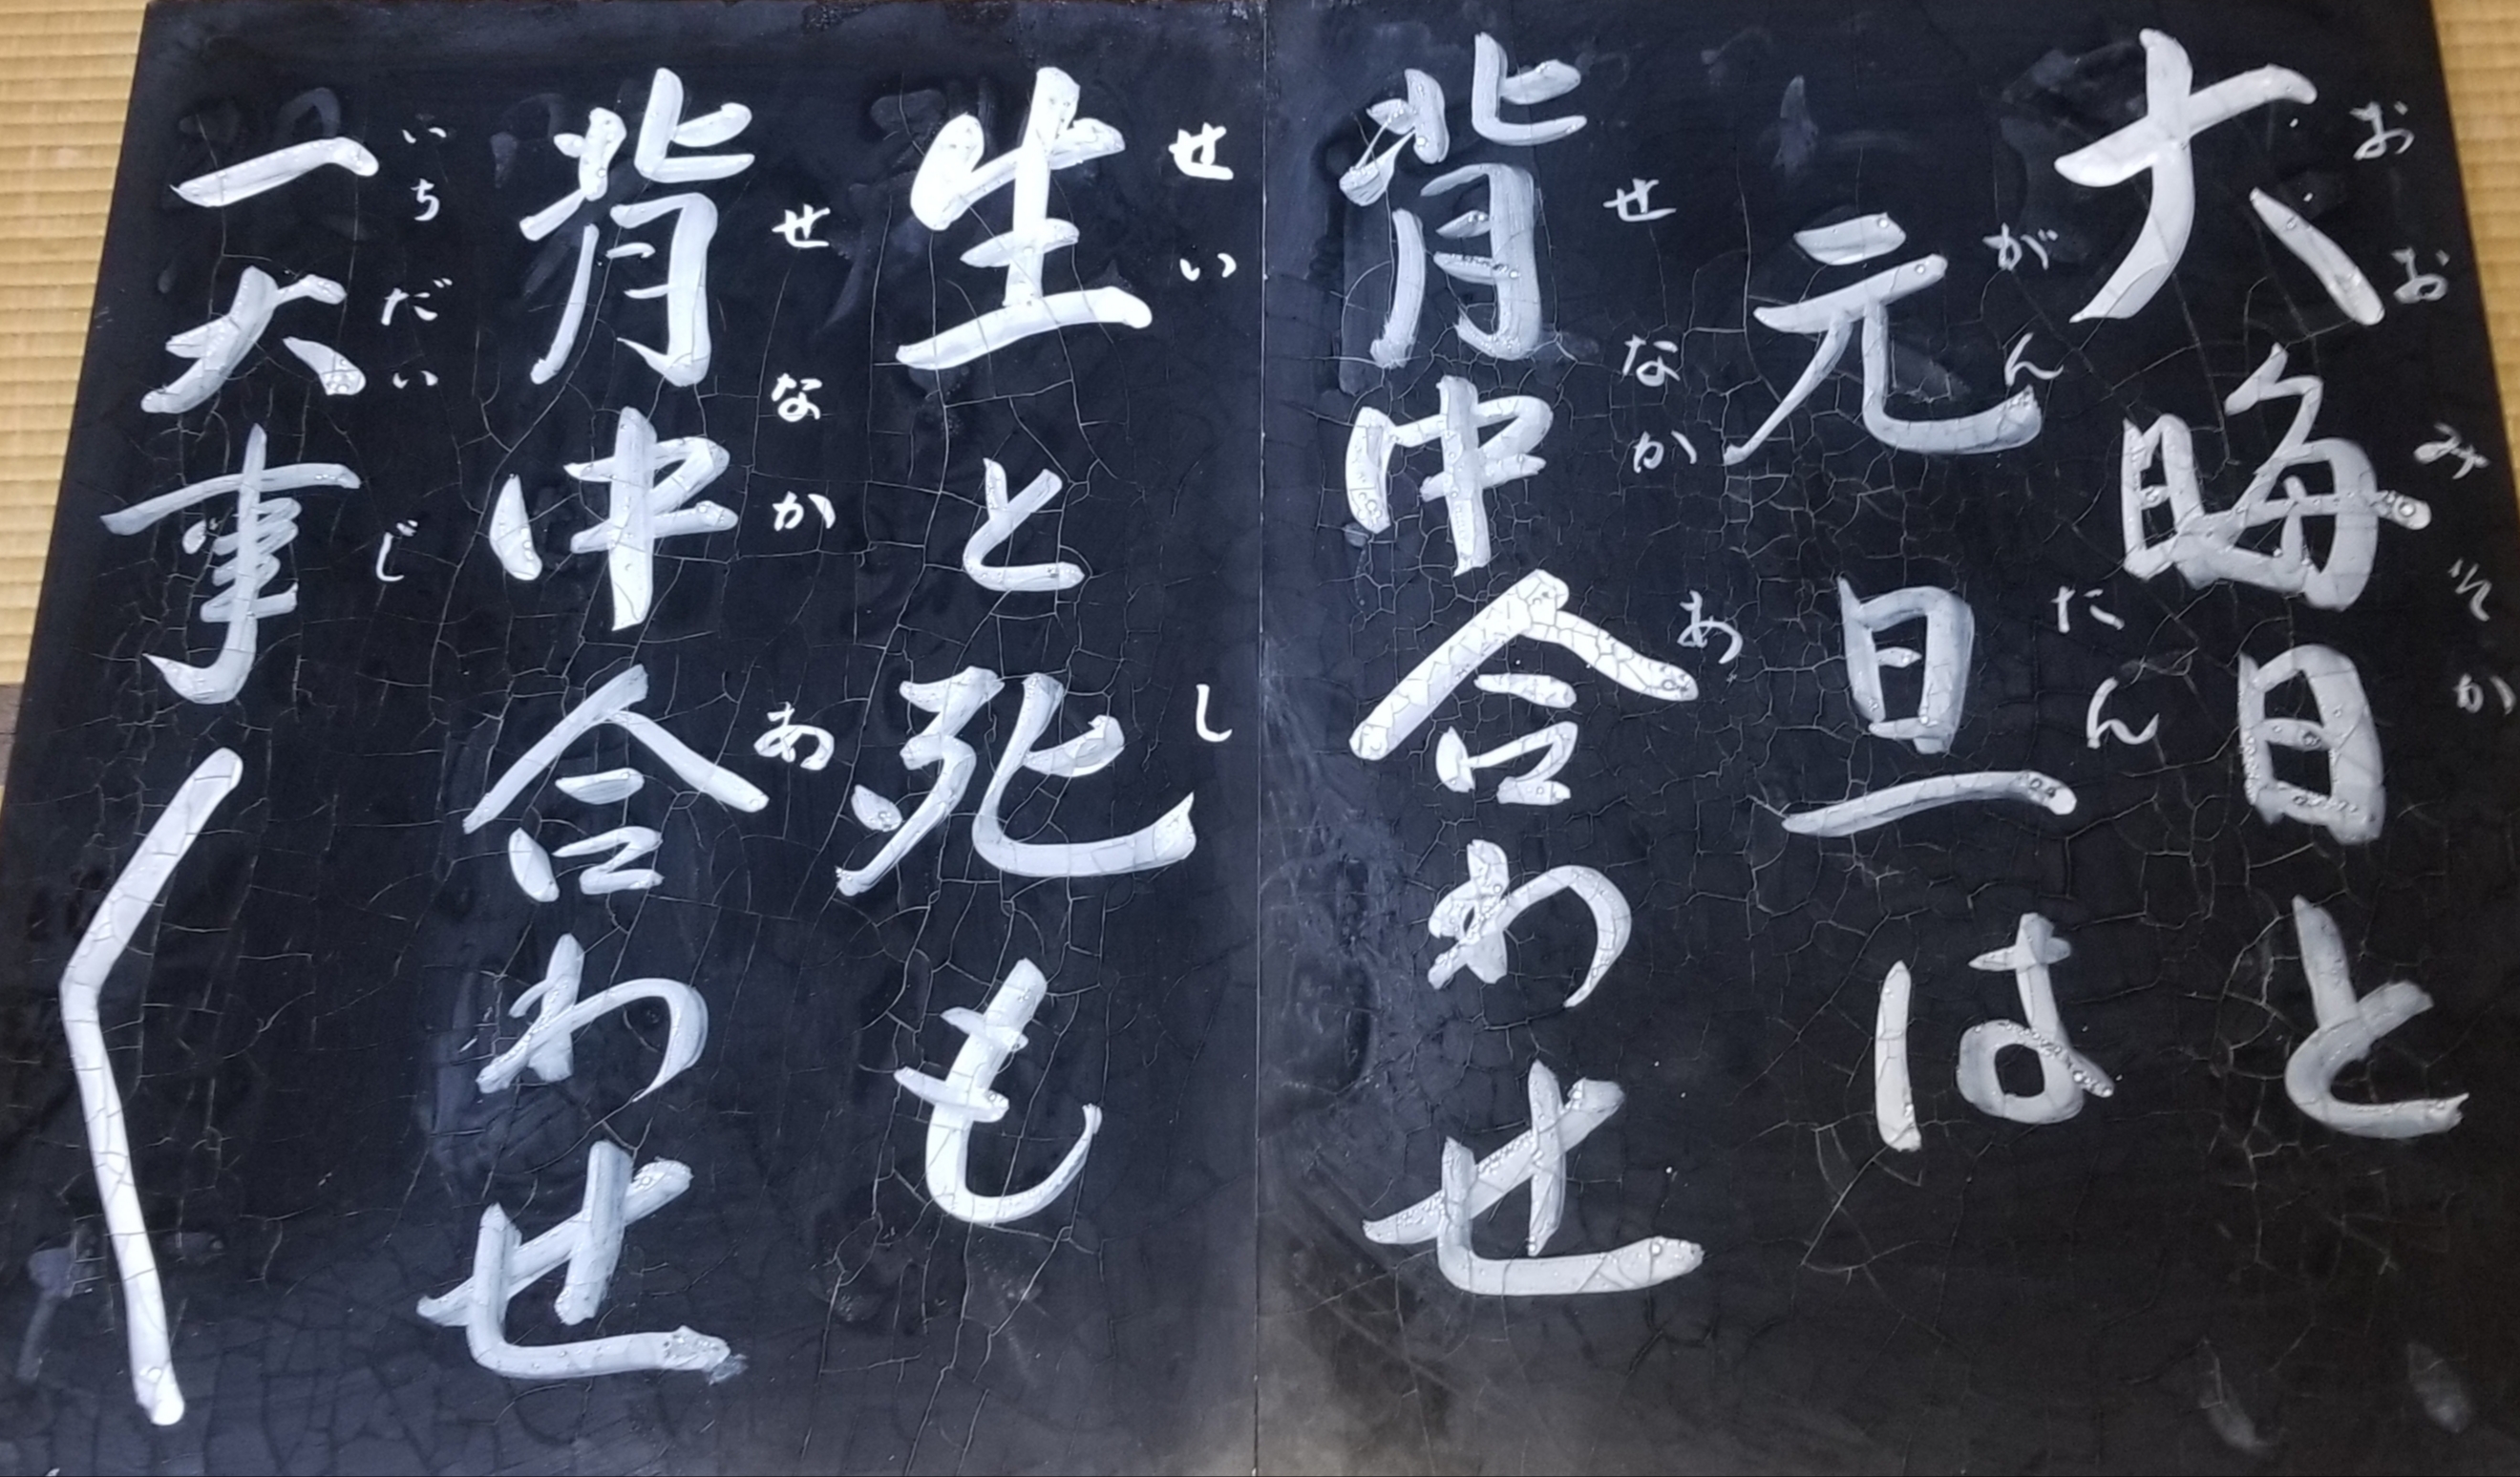 大晦日と
おおみそか
元旦は
がんたん
背中合わせ
せなかあ
生と死も
せいし
背中合わせ
せなかあ
一大事〱
いちだいじ